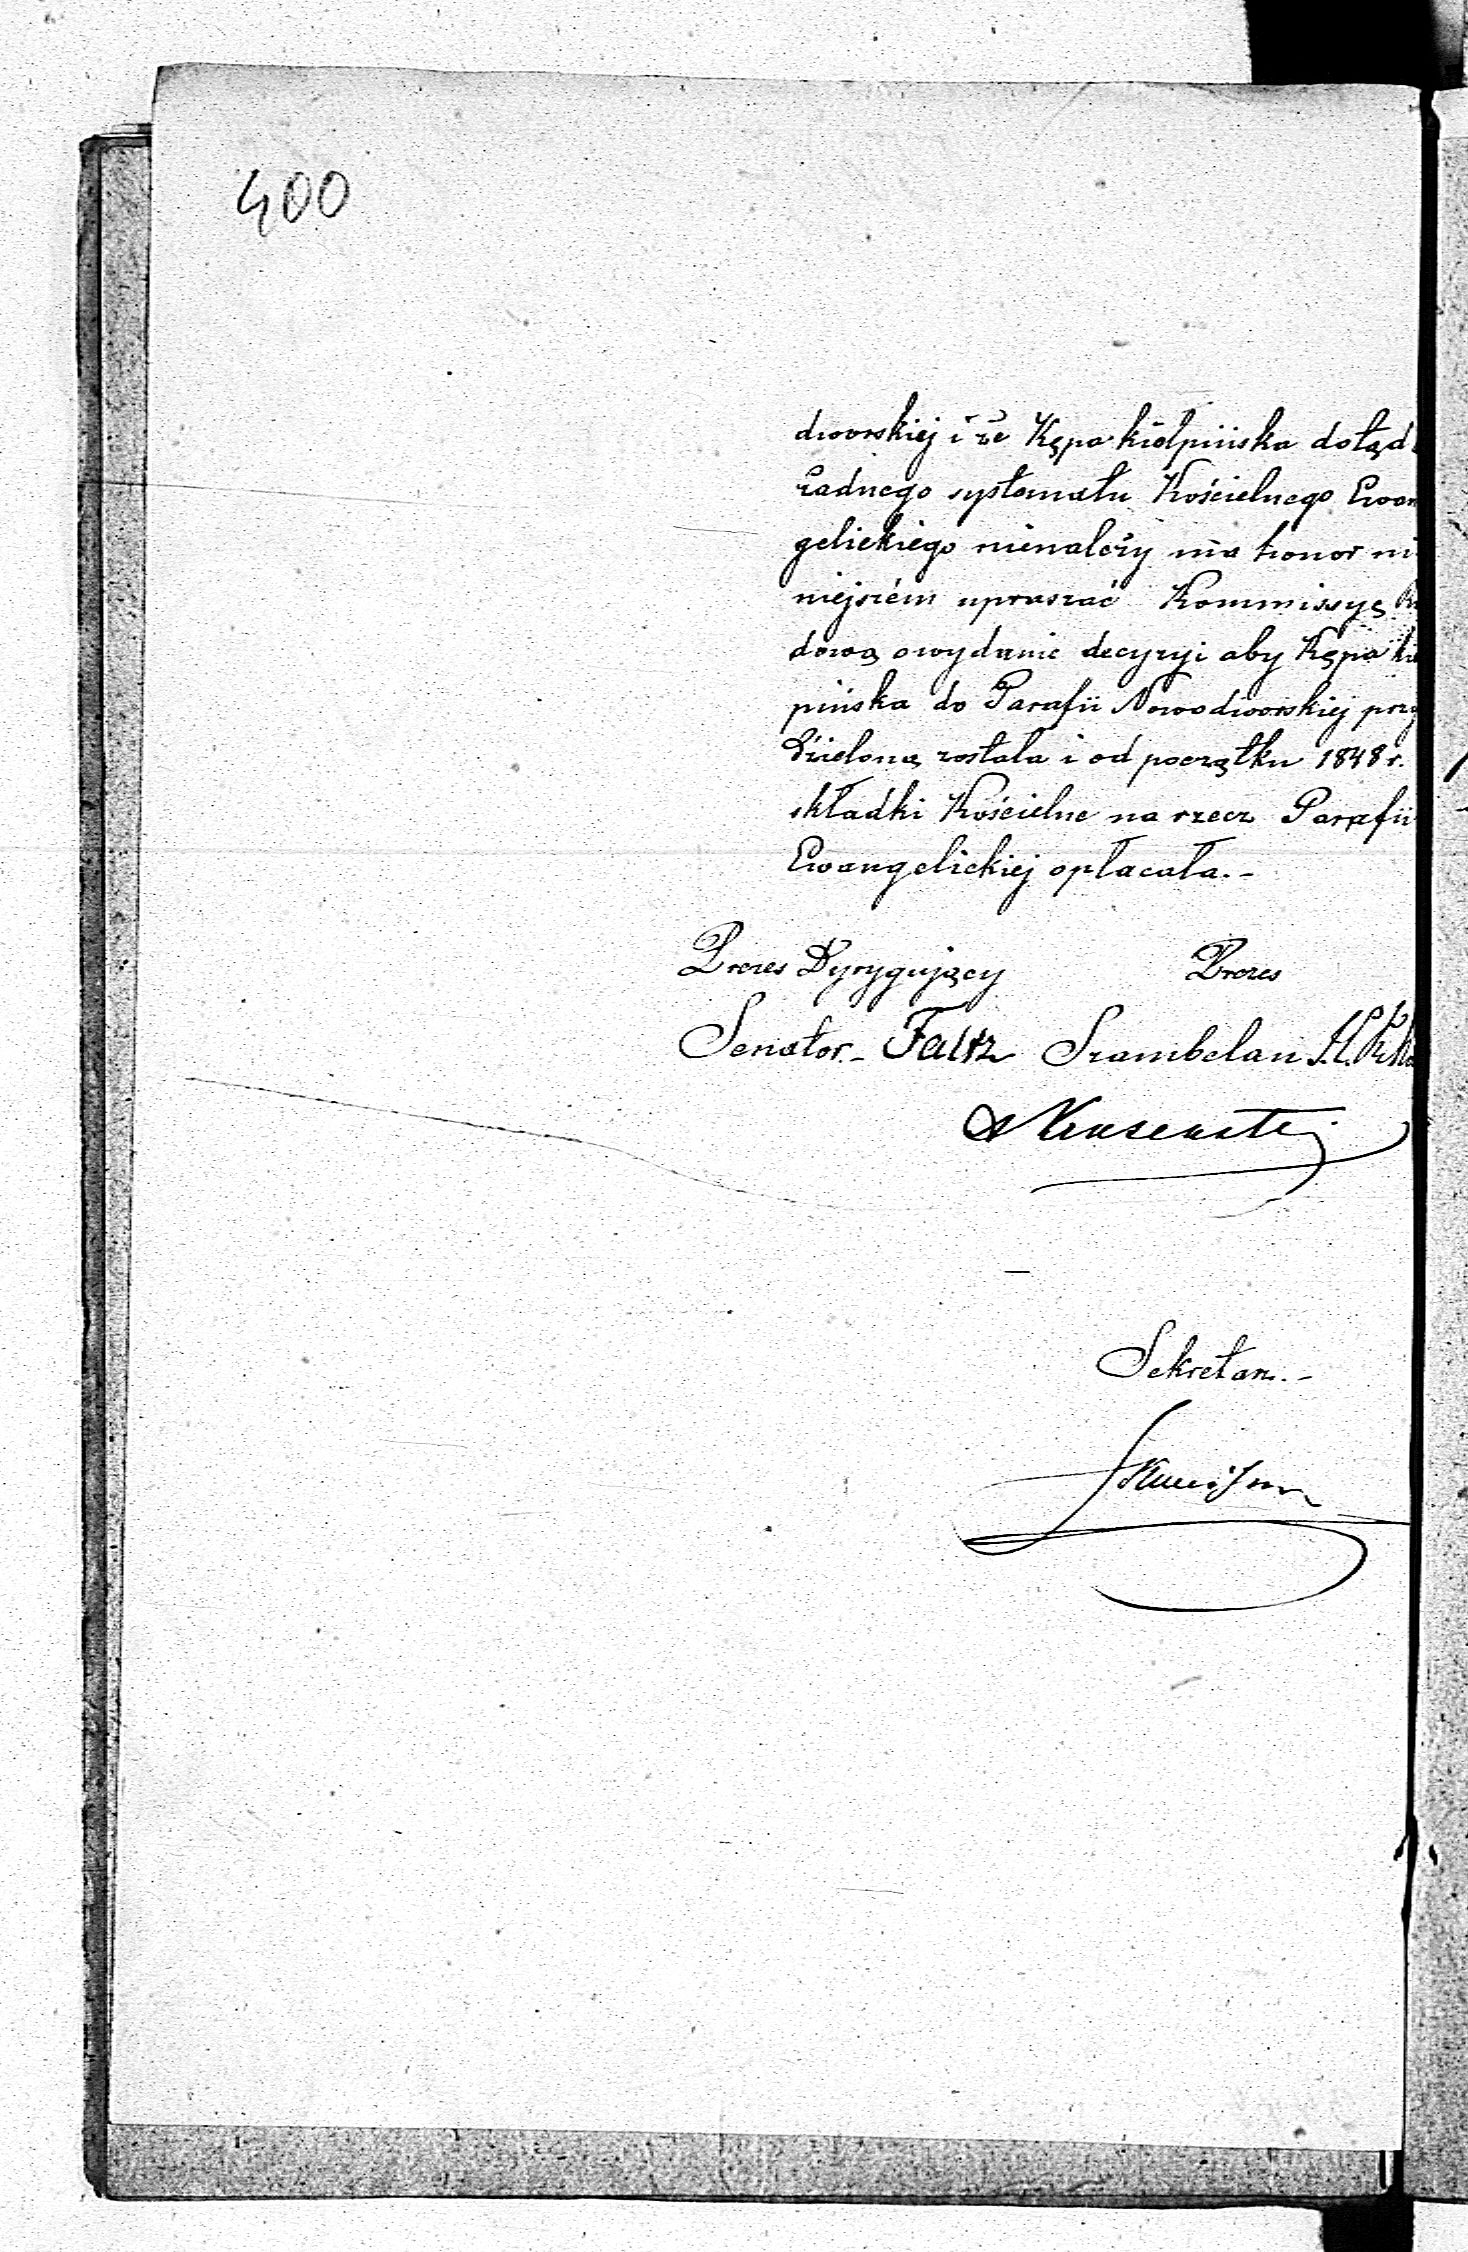 400
dworskiej i że Kępa kiełpińska dotąd
żadnego systematu Kościelnego Ewan
gelickiego nienależy ma honor ni
niejszém upraszać Kommissyę
dową o wydanie decyzyi aby Kępa kie
pińska do Parafii Nowodworskiej przy
dzieloną została i od początku 1848 r.
składki Kościelne na rzecz Parafii
Ewangelickiej opłacała.-
Prezes Dyrygujący Prezes
Senator.- Faltz Szambelan
Sekretarz.-